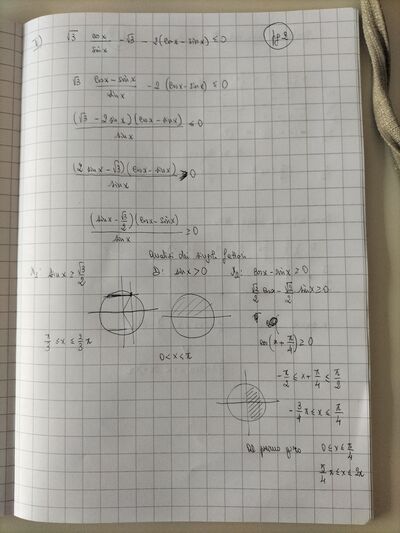 √3 cosx/sinx - √3 - 2(cosx - sinx) ≤ 0
pg 2
√3 (cosx - sinx)/sinx - 2(cosx - sinx) ≤ 0
(√3 - 2 sinx)(cosx - sinx)/sinx ≤ 0
(2 sinx - √3)(cosx - sinx)/sinx ≥ 0
(sinx - √3/2)(cosx - sinx)/sinx ≥ 0
Analisi dei singoli fattori
N₁: sinx ≥ √3/2
π/3 ≤ x ≤ 2/3 π
D: sinx > 0
0 < x < π
N₂: cosx - sinx ≥ 0
√2/2 cosx - √2/2 sinx ≥ 0
cos(x + π/4) ≥ 0
-π/2 ≤ x + π/4 ≤ π/2
-3/4 π ≤ x ≤ π/4
primo giro 0 ≤ x ≤ π/4